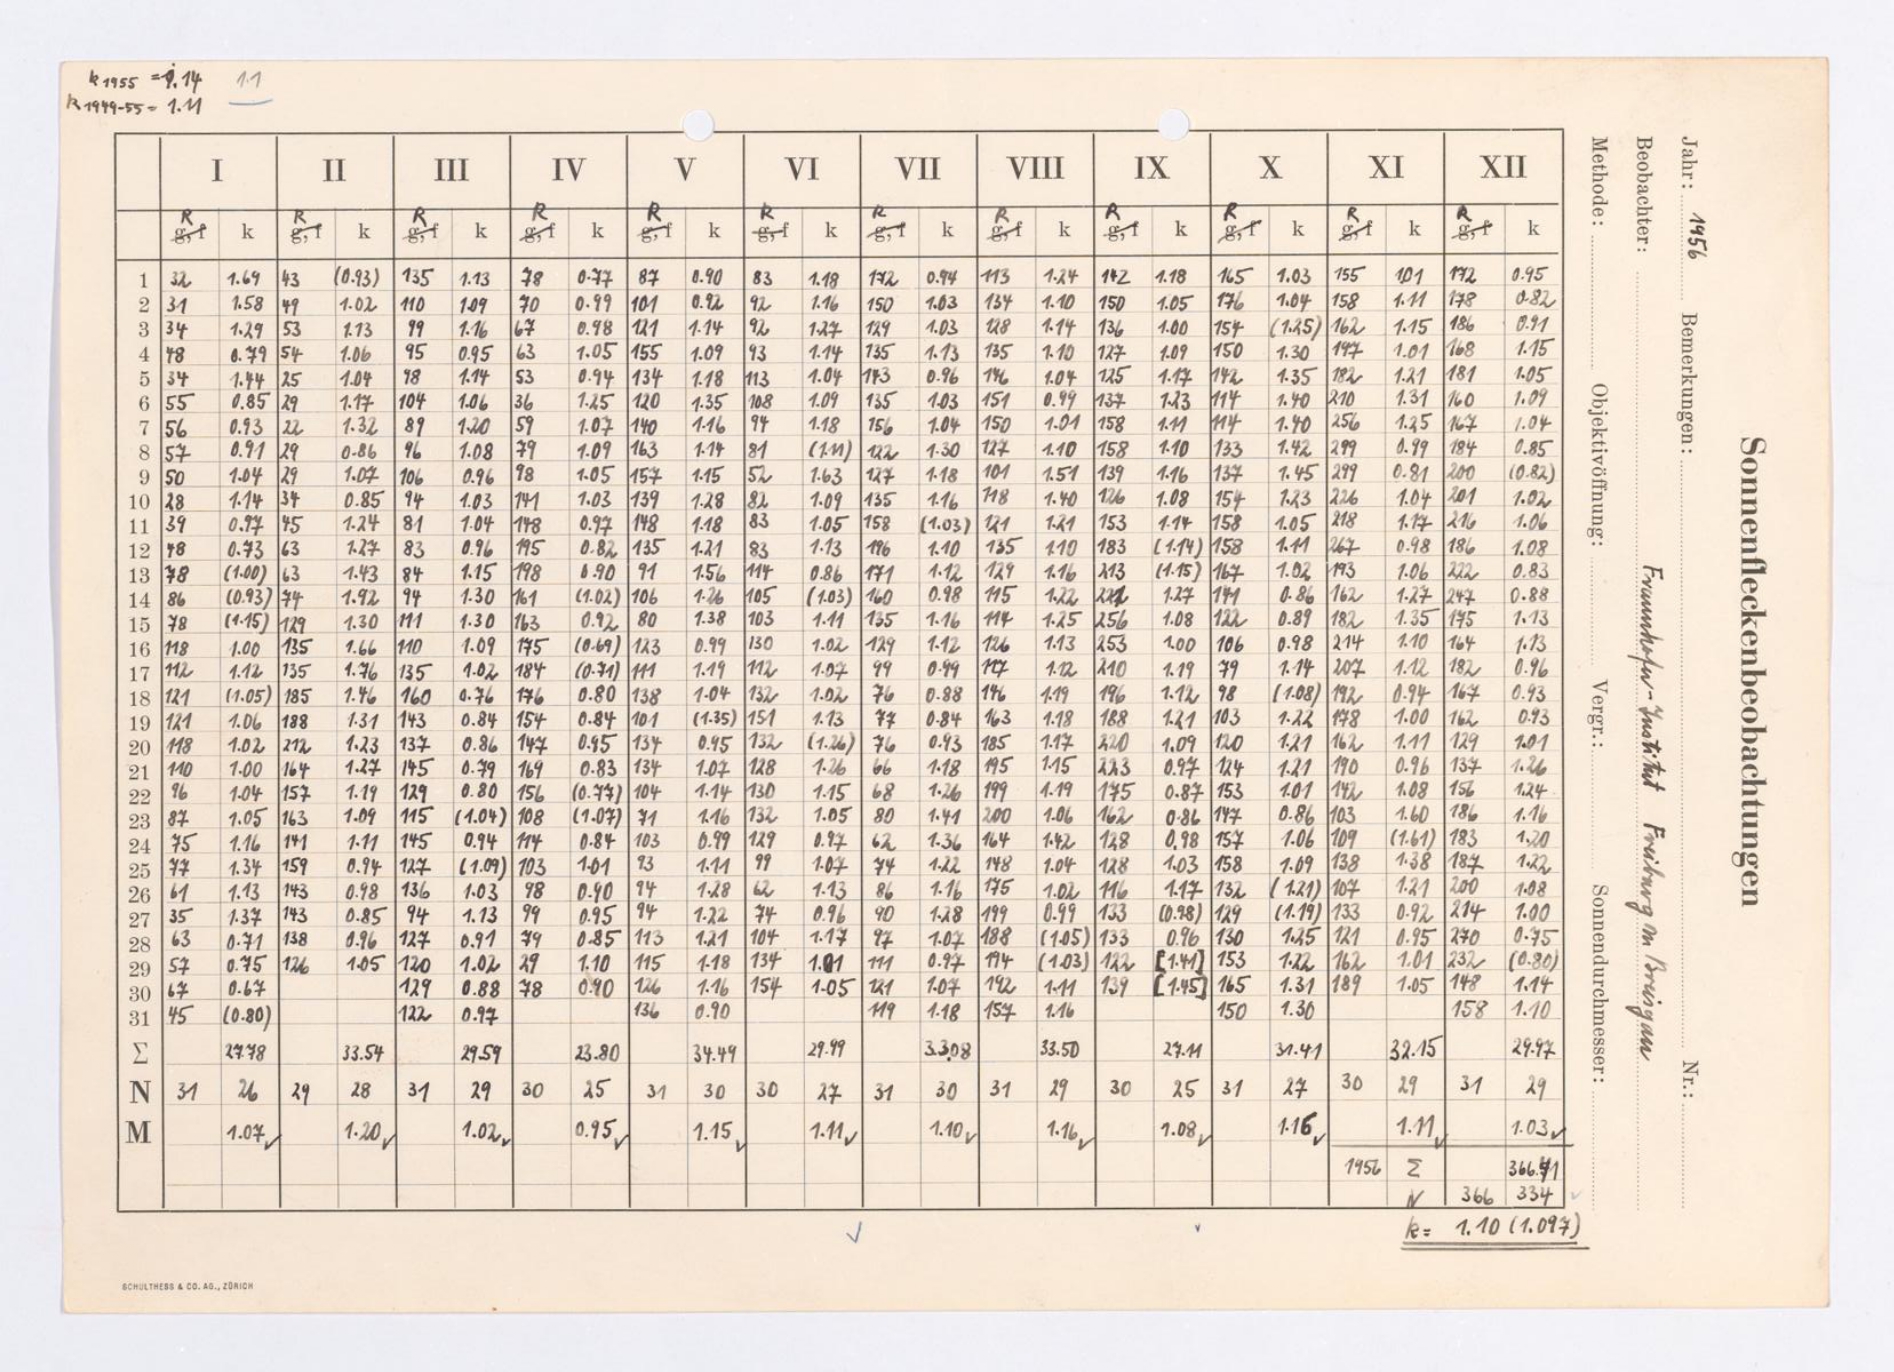 k 1955 = 1.14 1.1
k 1949-55 = 1.11
I II III IV V VI VII VIII IX X XI XII
R g, f k R g, f k R g, f k R g, f k R g, f k R g, f k R g, f k R g, f k R g, f k R g, f k R g, f k R g, f k
1 32 1.69 43 (0.93) 135 1.13 78 0.77 87 0.90 83 1.18 172 0.94 113 1.24 142 1.18 165 1.03 155 1.01 172 0.95
2 31 1.58 49 1.02 110 1.09 70 0.99 101 0.92 92 1.16 150 1.03 134 1.10 150 1.05 176 1.04 158 1.11 178 0.82
3 34 1.29 53 1.13 99 1.16 67 0.98 121 1.14 92 1.27 129 1.03 128 1.14 136 1.00 154 (1.25) 162 1.15 186 0.91
4 48 0.79 54 1.06 95 0.95 63 1.05 155 1.09 93 1.14 135 1.13 135 1.10 127 1.09 150 1.30 197 1.01 168 1.15
5 34 1.44 25 1.04 98 1.14 53 0.94 134 1.18 113 1.04 143 0.96 146 1.04 125 1.17 142 1.35 182 1.21 181 1.05
6 55 0.85 29 1.17 104 1.06 36 1.25 120 1.35 108 1.09 135 1.03 151 0.99 137 1.23 114 1.40 210 1.31 160 1.09
7 56 0.93 22 1.32 89 1.20 59 1.07 140 1.16 94 1.18 156 1.04 150 1.01 158 1.11 114 1.40 256 1.25 167 1.04
8 57 0.91 29 0.86 96 1.08 79 1.09 163 1.14 81 (1.11) 122 1.30 127 1.10 158 1.10 133 1.42 299 0.99 184 0.85
9 50 1.04 29 1.07 106 0.96 98 1.05 157 1.15 52 1.63 127 1.18 101 1.51 139 1.16 137 1.45 299 0.81 200 (0.82)
10 28 1.14 34 0.85 94 1.03 141 1.03 139 1.28 82 1.09 135 1.16 118 1.40 126 1.08 154 1.23 226 1.04 201 1.02
11 39 0.97 45 1.24 81 1.04 148 0.97 148 1.18 83 1.05 158 (1.03) 121 1.21 153 1.14 158 1.05 218 1.17 216 1.06
12 48 0.73 63 1.27 83 0.96 195 0.82 135 1.21 83 1.13 186 1.10 135 1.10 183 (1.14) 158 1.11 267 0.98 186 1.08
13 78 (1.00) 63 1.43 84 1.15 198 0.90 91 1.56 114 0.86 171 1.12 129 1.16 213 (1.15) 167 1.02 193 1.06 222 0.83
14 86 (0.93) 74 1.92 94 1.30 161 (1.02) 106 1.26 105 (1.03) 160 0.98 115 1.22 221 1.27 141 0.86 162 1.27 247 0.88
15 78 (1.15) 129 1.30 111 1.30 163 0.92 80 1.38 103 1.11 135 1.16 114 1.25 256 1.08 122 0.89 182 1.35 175 1.13
16 118 1.00 135 1.66 110 1.09 175 (0.69) 123 0.99 130 1.02 129 1.12 126 1.13 253 1.00 106 0.98 214 1.10 164 1.13
17 112 1.12 135 1.76 135 1.02 184 (0.71) 111 1.19 112 1.07 99 0.99 117 1.12 210 1.19 79 1.14 207 1.12 182 0.96
18 121 (1.05) 185 1.46 160 0.76 176 0.80 138 1.04 132 1.02 76 0.88 146 1.19 196 1.12 98 (1.08) 192 0.94 167 0.93
19 121 1.06 188 1.31 143 0.84 154 0.84 101 (1.35) 151 1.13 77 0.84 163 1.18 188 1.21 103 1.22 178 1.00 162 0.93
20 118 1.02 212 1.23 137 0.86 147 0.95 134 0.95 132 (1.26) 76 0.93 185 1.17 220 1.09 120 1.21 162 1.11 129 1.01
21 110 1.00 164 1.27 145 0.79 169 0.83 134 1.07 128 1.26 66 1.18 195 1.15 223 0.97 124 1.21 190 0.96 137 1.26
22 96 1.04 157 1.19 129 0.80 156 (0.77) 104 1.14 130 1.15 68 1.26 199 1.19 175 0.87 153 1.01 142 1.08 156 1.24
23 87 1.05 163 1.09 115 (1.04) 108 (1.07) 71 1.16 132 1.05 80 1.41 200 1.06 162 0.86 147 0.86 103 1.60 186 1.16
24 75 1.16 141 1.11 145 0.94 114 0.84 103 0.99 129 0.97 62 1.36 164 1.42 128 0.98 157 1.06 109 (1.61) 183 1.20
25 77 1.34 159 0.94 127 (1.09) 103 1.01 93 1.11 99 1.07 74 1.22 148 1.04 128 1.03 158 1.09 138 1.38 187 1.22
26 61 1.13 143 0.98 136 1.03 98 0.90 94 1.28 62 1.13 86 1.16 175 1.02 116 1.17 132 (1.21) 107 1.21 200 1.08
27 35 1.37 143 0.85 94 1.13 99 0.95 94 1.22 74 0.96 90 1.28 199 0.99 133 (0.98) 129 (1.19) 133 0.92 214 1.00
28 63 0.71 138 0.96 127 0.91 79 0.85 113 1.21 104 1.17 97 1.07 188 (1.05) 133 0.96 130 1.25 121 0.95 270 0.75
29 57 0.75 126 1.05 120 1.02 29 1.10 115 1.18 134 1.01 111 0.97 194 (1.03) 122 [1.41] 153 1.22 162 1.01 232 (0.80)
30 67 0.67 129 0.88 78 0.90 126 1.16 154 1.05 121 1.07 192 1.11 139 [1.45] 165 1.31 189 1.05 148 1.14
31 45 (0.80) 122 0.97 136 0.90 119 1.18 157 1.16 150 1.30 158 1.10
Σ 27.78 33.54 29.59 23.80 34.49 29.99 33.08 33.50 27.11 31.41 32.15 29.97
N 31 26 29 28 31 29 30 25 31 30 30 27 31 30 31 29 30 25 31 27 30 29 31 29
M 1.07 1.20 1.02 0.95 1.15 1.11 1.10 1.16 1.08 1.16 1.11 1.03
1956 Σ 366.41
N 366 334
k = 1.10 (1.097)
SCHULTHESS & CO. AG., ZÜRICH
Sonnenfleckenbeobachtungen
Jahr: 1956 Bemerkungen: Nr.:
Beobachter: Fraunhofer-Institut Freiburg im Breisgau
Methode: Objektivöffnung: Vergr.: Sonnendurchmesser: